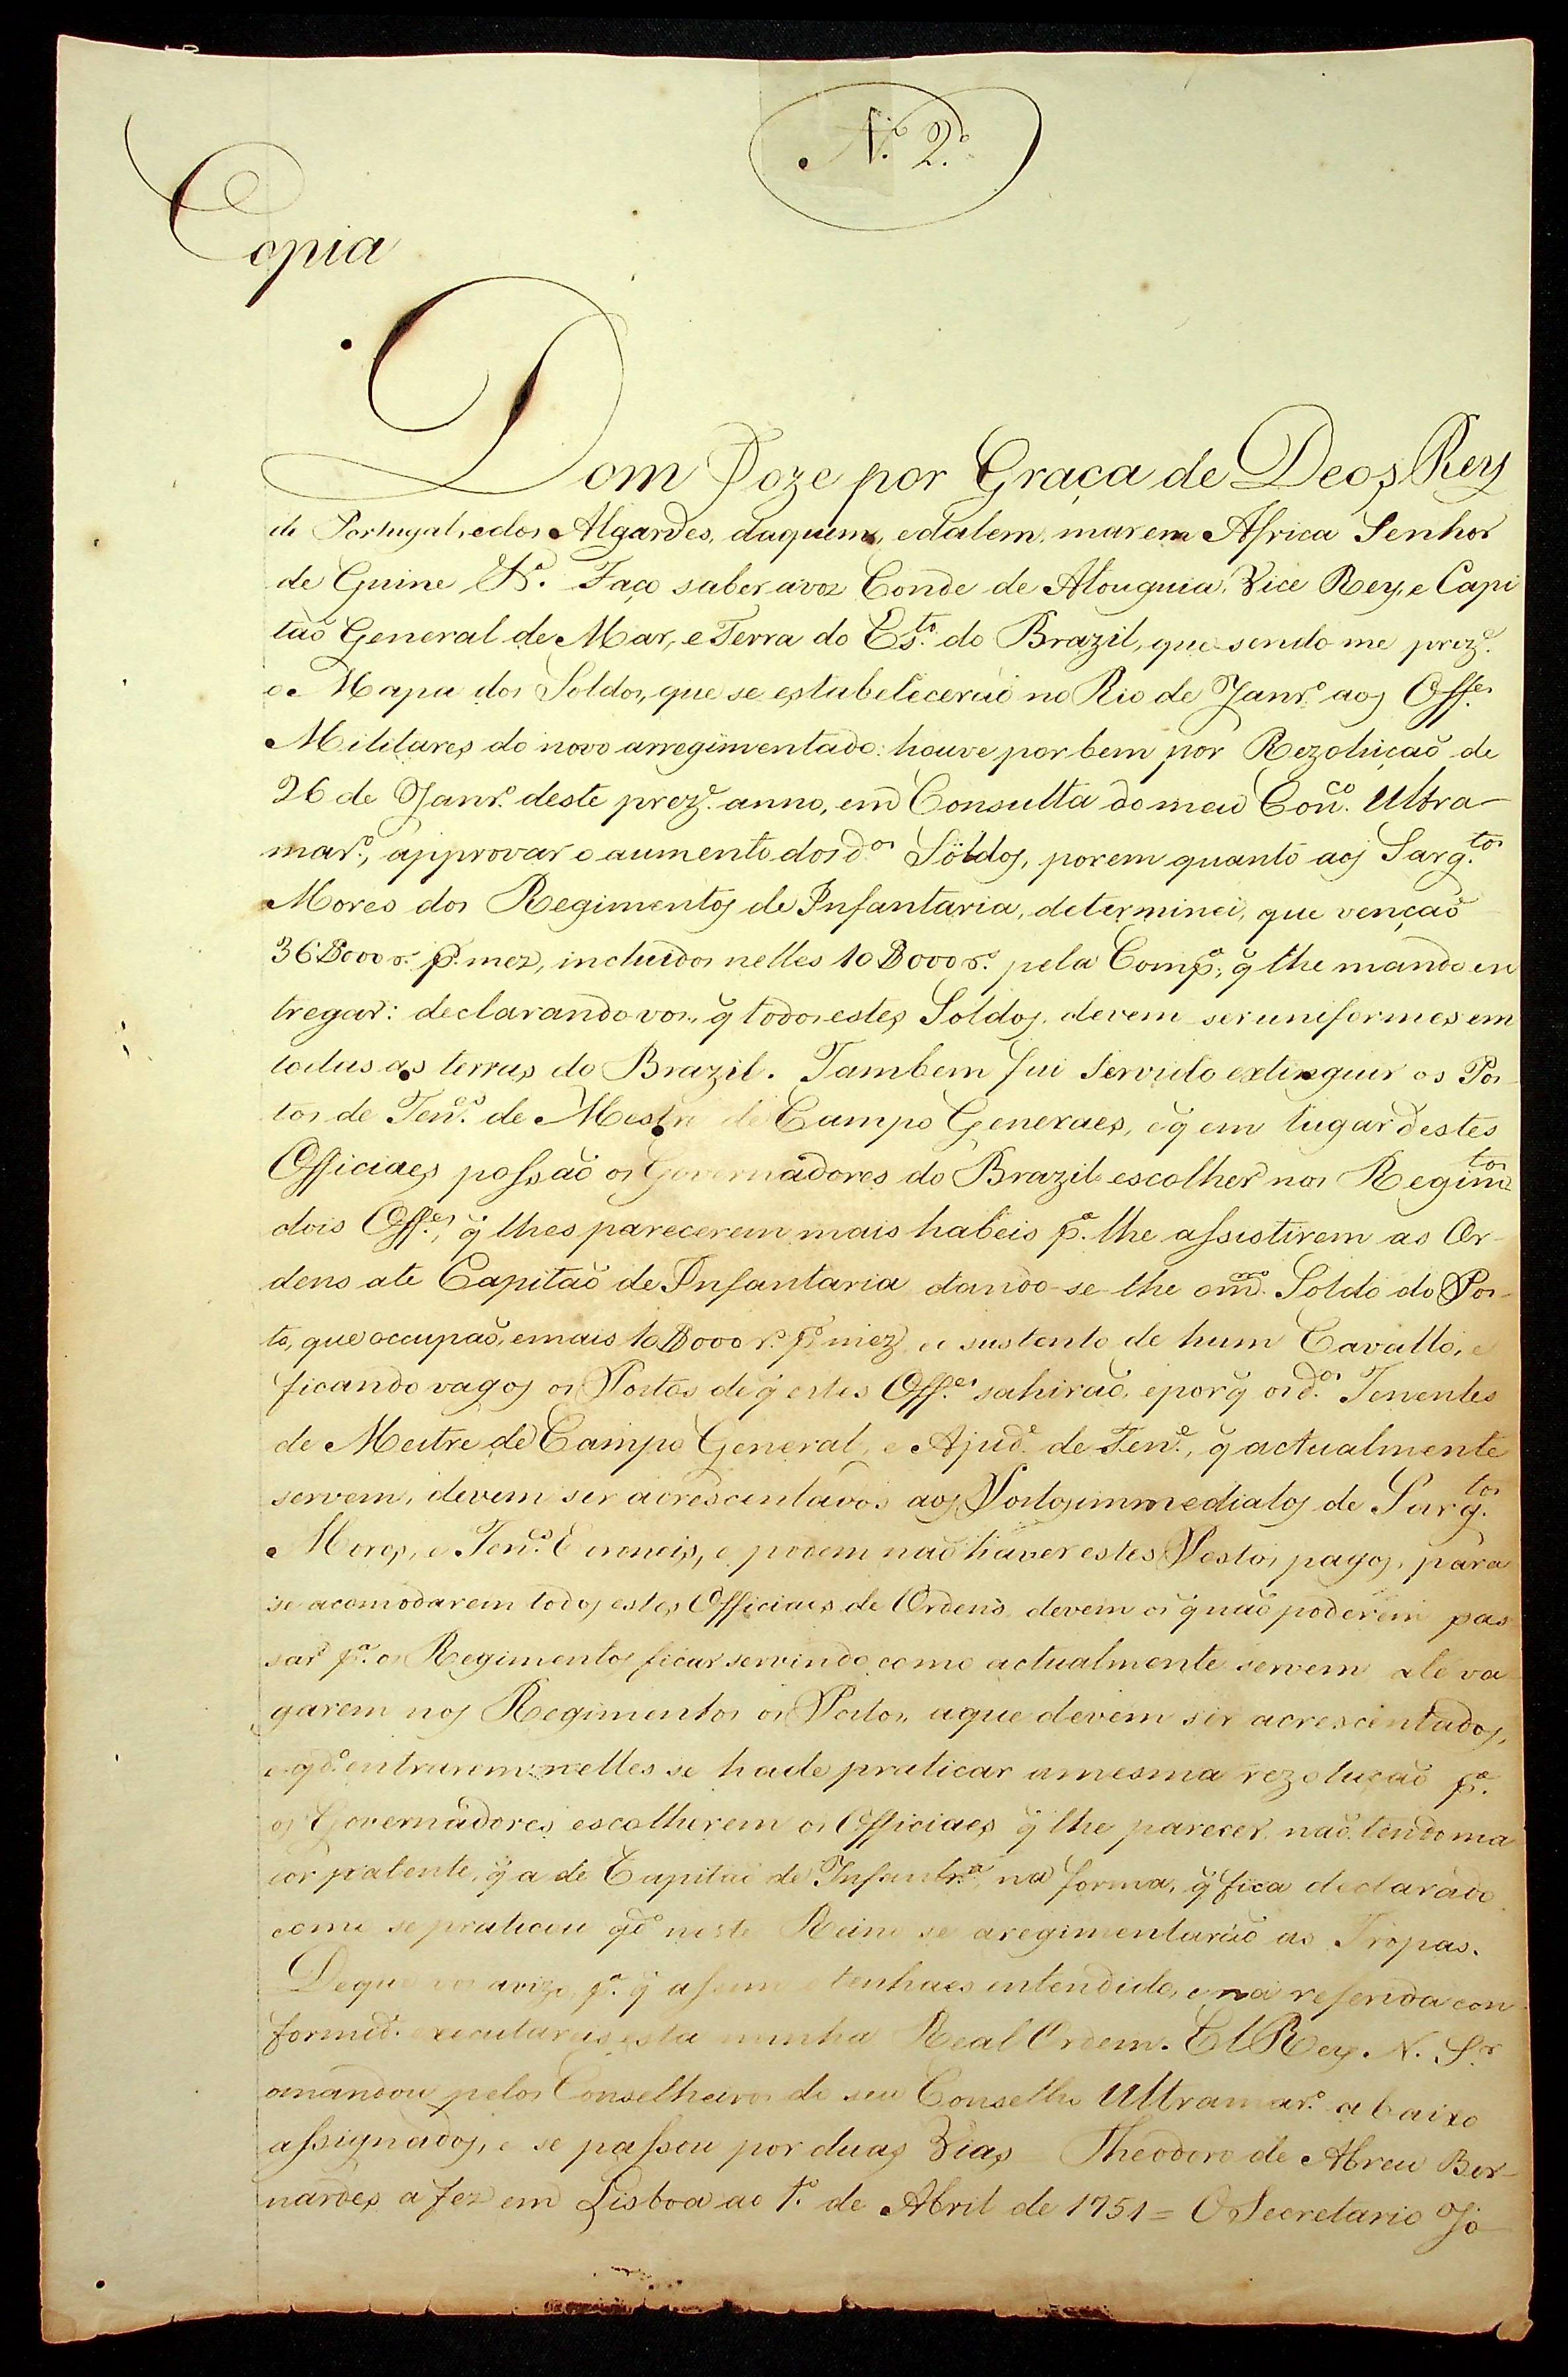 N.º 2.º
Copia
Dom Joze por Graça de Deos Rey
de Portugal, e dos Algarves, daquem, e dalem, mar em Africa Senhor
de Guine &.ª Faço saber a vos Conde de Atouguia, Vice Rey, e Capi
taõ General de Mar, e Terra do Est.º do Brazil, que sendo me prez.e
o Mapa dos Soldos, que se estabeleceraõ no Rio de Janr.º aos Off.es
Militares do novo arregimentado: houve por bem por Rezoluçaõ de
26 de Janr.º deste prez.e anno, em Consulta do meu Con.co Ultra-
mar.º, approvar o aumento dos d.os Soldos, porem quanto aos Sarg.tos
Mores dos Regimentos de Infantaria, determinei, que vençaõ
36$000 r.s p.r mez, incluidos nelles 10$000 r.s pela Comp.ª, q̃ lhe mando en
tregar: declarando vos, q̃ todos estes Soldos, devem ser uniformes em
todas as terras do Brazil. Tambem fui servido extinguir os Pos
tos de Ten.es de Mestre de Campo Generaes, e q̃ em lugar destes
Officiaes possaõ os Governadores do Brazil escolher nos Regim.tos
dois Off.es, q̃ lhes parecerem mais habeis p.ª lhe assistirem as Or-
dens ate Capitaõ de Infantaria dando-se lhe o m.mo Soldo do Pos-
to, que occupaõ, e mais 10$000 r.s p.r mez, e o sustento de hum Cavallo, e
ficando vagos os Postos de q̃ estes Off.es sahiraõ, e porq̃ os d.os Tenentes
de Mestre de Campo General, e Ajud.es de Ten.e, q̃ actualmente
servem, devem ser acrescentados aos Postos immediatos de Sarg.tos
Mores, e Ten.es Coroneis, e podem naõ haver estes Postos pagos, para
se acomodarem todos estes Officiaes de Ordens, devem os q̃ naõ poderem pas
sar p.ª os Regimentos ficar servindo como actualmente servem ate va
garem nos Regimentos os Postos, a que devem ser acrescentados,
e q.do entrarem nelles se hade praticar a mesma rezoluçaõ p.ª
os Governadores escolherem os Officiaes q̃ lhe parecer, naõ tendo ma
ior patente, q̃ a de Capitaõ de Infantr.ª, na forma, q̃ fica declarado
como se praticou q.do neste Reino se aregimentaraõ as Tropas.
De que vos avizo, p.ª q̃ assim o tenhaes entendido, e na referida con
formid.e executareis esta minha Real Ordem. El Rey N. S.r
o mandou pelos Conselheiros do seu Conselho Ultramar.º abaixo
assignados, e se passou por duas Vias = Theodoro de Abreu Ber-
nardes a fez em Lisboa ao 1.º de Abril de 1751 = O Secretario Jo